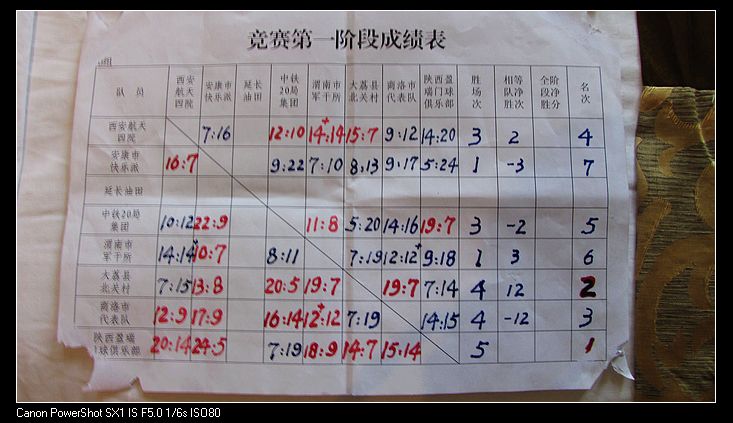 竞赛第一阶段成绩表
组
队 员 西安航天四院 安康市快乐派 延长油田 中铁20局集团 渭南市军干所 大荔县北关村 商洛市代表队 陕西盈瑞门球俱乐部 胜场次 相等队净胜次 全阶段净胜分 名次
西安航天四院 7:16 12:10 14:14 15:7 9:12 14:20 3 2 4
安康市快乐派 16:7 9:22 7:10 8:13 9:17 5:24 1 -3 7
延长油田
中铁20局集团 10:12 22:9 11:8 5:20 14:16 19:7 3 -2 5
渭南市军干所 14:14 10:7 8:11 7:19 12:12 9:18 1 3 6
大荔县北关村 7:15 13:8 20:5 19:7 19:7 7:14 4 12 2
商洛市代表队 12:9 17:9 16:14 12:12 7:19 14:15 4 -12 3
陕西盈瑞门球俱乐部 20:14 24:5 7:19 18:9 14:7 15:14 5 1
Canon PowerShot SX1 IS F5.0 1/6s ISO80